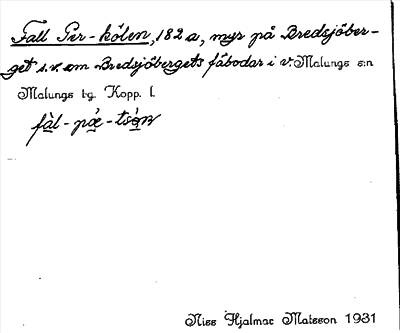 Fall Per-kölen, 182 a, myr på Bredsjöber-
get s.v. om Bredsjöbergets fäbodar i v. Malungs s:n
Malungs tg. Kopp. l.
fàl-pǽ-tsón
Niss Hjalmar Matsson 1931